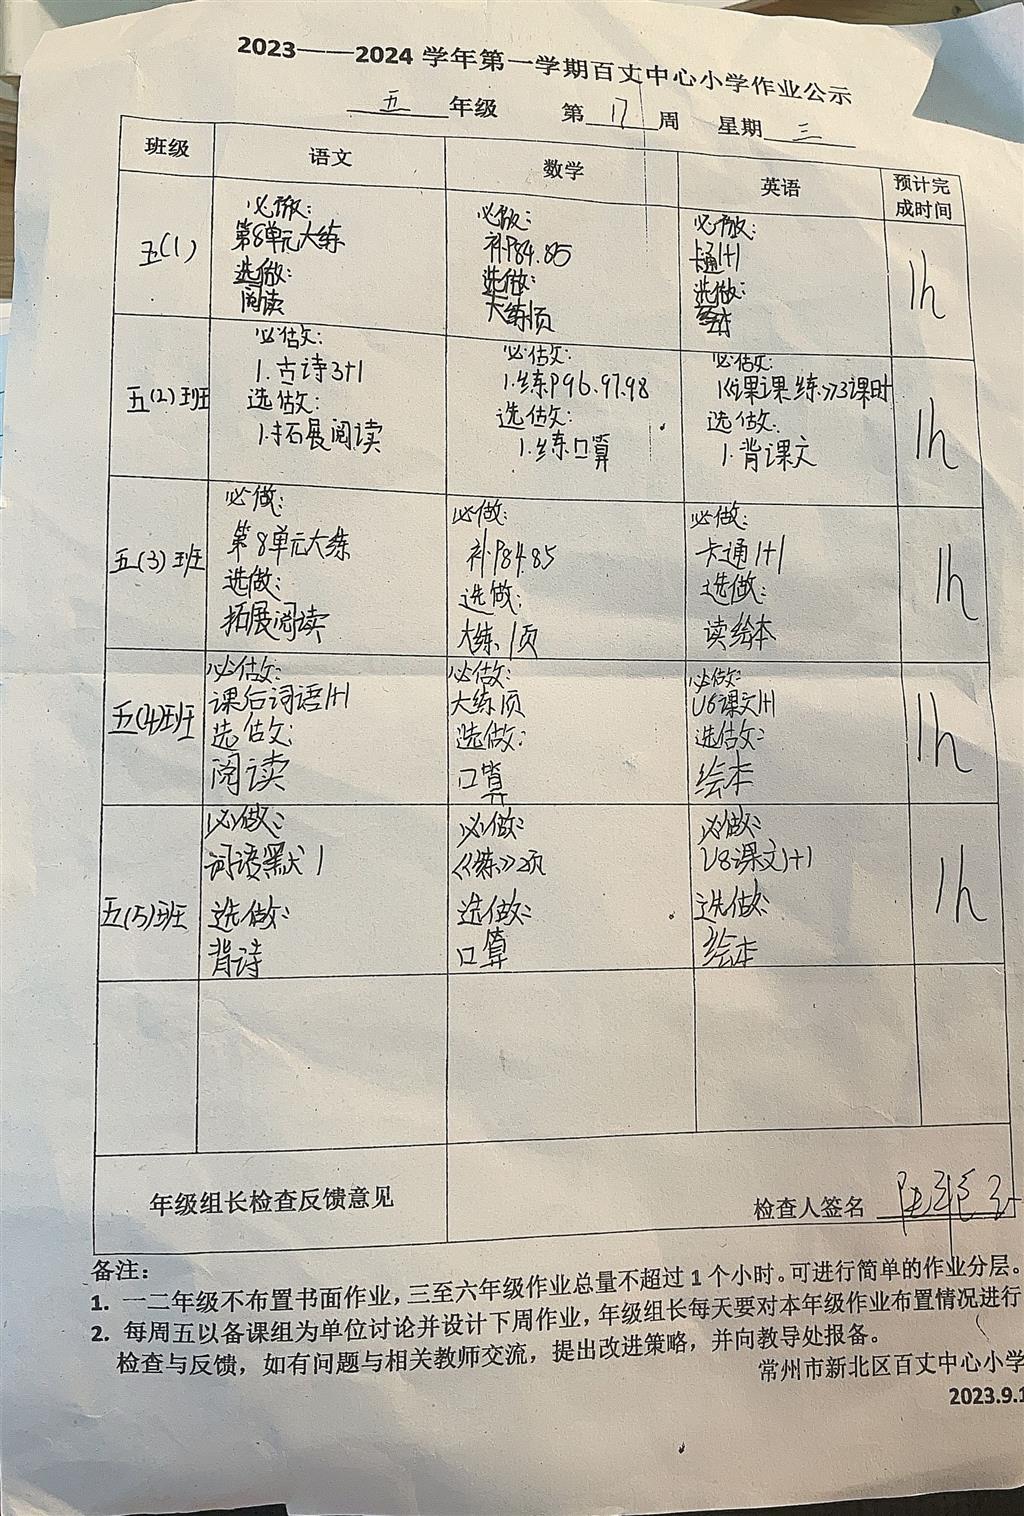 2023——2024 学年第一学期百丈中心小学作业公示
五 年级 第 17 周 星期 三
班级 语文 数学 英语 预计完成时间
五(1)
必做:
第8单元大练
选做:
阅读
必做:
补P84.85
选做:
大练1页
必做:
卡通1+1
选做:
绘本
1h
五(2)班
必做:
1.古诗3+1
选做:
1.拓展阅读
必做:
1.练P96.97.98
选做:
1.练口算
必做:
1.《课课练》3课时
选做:
1.背课文
1h
五(3)班
必做:
第8单元大练
选做:
拓展阅读
必做:
补P84.85
选做:
大练1页
必做:
卡通1+1
选做:
读绘本
1h
五(4)班
必做:
课后词语1+1
选做:
阅读
必做:
大练1页
选做:
口算
必做:
U6课文1+1
选做:
绘本
1h
五(5)班
必做:
词语默1
选做:
背诗
必做:
《练》2页
选做:
口算
必做:
U8课文1+1
选做:
绘本
1h
年级组长检查反馈意见
检查人签名
备注:
1. 一二年级不布置书面作业,三至六年级作业总量不超过1个小时。可进行简单的作业分层。
2. 每周五以备课组为单位讨论并设计下周作业,年级组长每天要对本年级作业布置情况进行
检查与反馈,如有问题与相关教师交流,提出改进策略,并向教导处报备。
常州市新北区百丈中心小学
2023.9.1